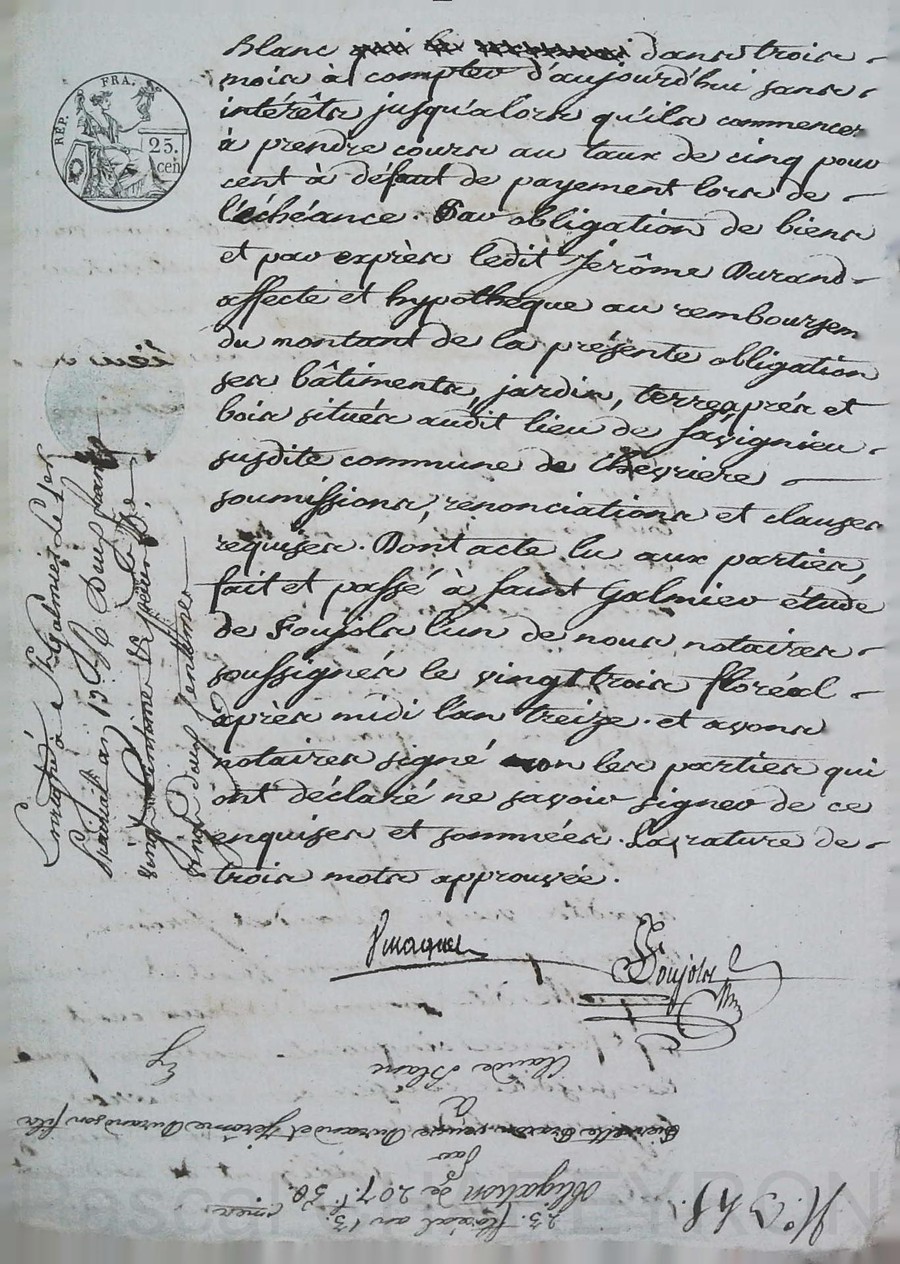 RÉP. FRA.
25.
cen
Blanc dans trois
mois à compter d'aujourd'hui sans
intérêts jusqu'alors qu'ils commencer
à prendre cours au taux de cinq pour
cent à défaut de payement lors de
l'échéance. Par obligation de biens
et par exprès ledit Jérôme Durand
affecte et hypothèque au remboursem
du montant de la présente obligation
ses bâtiments, jardin, terres, prés et
bois situés audit lieu de Savignieu
susdite commune de Chevriere
soumissions, renonciations et clauses
requises. Dont acte lu aux parties,
fait et passé à Saint Galmier étude
de Soujols l'un de nous notaires
soussignés le vingt trois floréal
après midi l'an treize. et avons
notaires signé non les parties qui
ont déclaré ne savoir signer de ce
enquises et sommées. La rature de
trois mots approuvée.
Enregistré à St Galmier Le 1er
Prairial an 13
Soujols
N.° 348.
23. floréal an 13.
Obligation de 207.f 30.
par
Pierrette veuve Durand et Jérôme Durand son fils
à
Claude Blanc
Ex